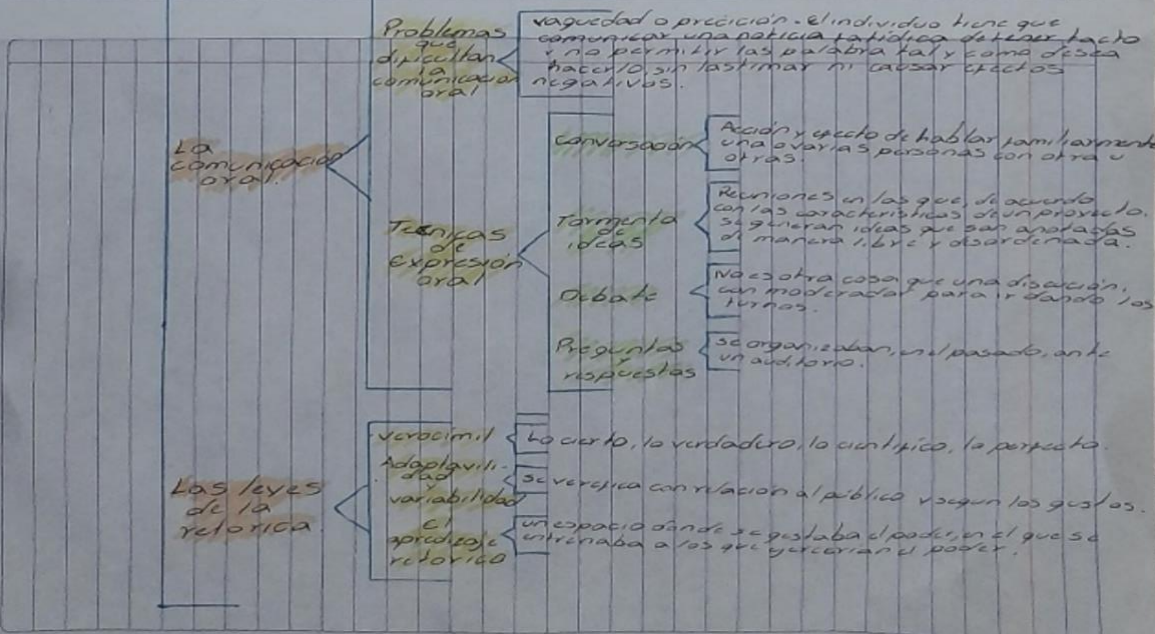 Problemas
que
dificultan
la
comunicacion
oral
vaguedad o precición - el individuo tiene que
comunicar una noticia fatidica detener tacto
y no permitir las palabra tal y como desea
hacerlo, sin lastimar ni causar efectos
negativos.
La
comunicación
oral.
Tecnicas
de
Expresión
oral
conversación
Acción y efecto de hablar familiarmente
una o varias personas con otra u
otras.
Tormenta
de
ideas
Reuniones en las que, de acuerdo
con las caracteristicas de un proyecto,
se generan ideas que son anotadas
de manera libre y desordenada.
Debate
No es otra cosa que una discución,
con moderador para ir dando los
turnos.
Preguntas
y
respuestas
se organizaban, en el pasado, ante
un auditorio.
Las leyes
de la
retorica
verocimil
Lo cierto, lo verdadero, lo cientifico, lo perfecto.
Adaptavili-
dad
y
variabilidad
se verefica con relación al público y segun los gustos.
El
apredizaje
retorico
un espacio donde se gestaba el poder, en el que se
entrenaba a los que ejercerian el poder.